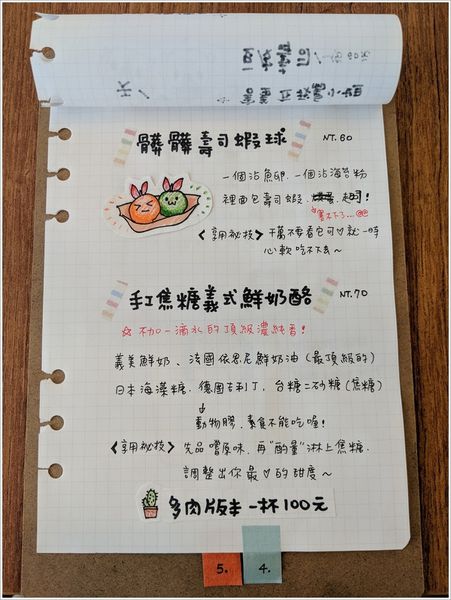 髒髒壽司蝦球 NT.60
一個沾魚卵.一個沾海苔粉
裡面包壽司蝦. 起司!
寫不下了...@@
<享用祕技>千萬不要看它可♡就一時
心軟吃不下去~
手工焦糖義式鮮奶酪 NT.70
☆不加一滴水的頂級濃純香!
義美鮮奶、法國依思尼鮮奶油(最頂級的)
日本海藻糖.德國吉利丁.台糖二砂糖(焦糖)
動物膠.素食不能吃喔!
<享用祕技>先品嚐原味.再"酌量"淋上焦糖.
調整出你最♡的甜度~
多肉版本一杯100元
5. 4.